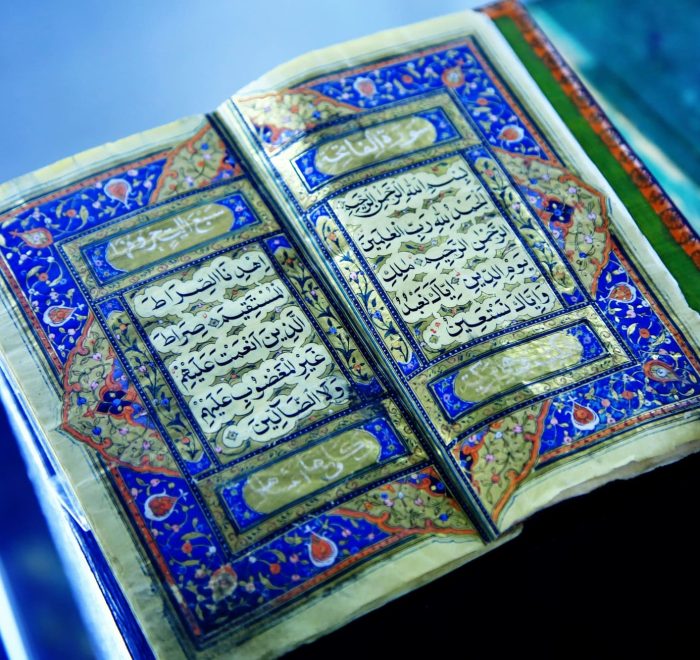 سورة الفاتحة
بِسْمِ اللهِ الرَّحْمٰنِ الرَّحِيمِ
الْحَمْدُ لِلّٰهِ رَبِّ الْعٰلَمِينَ
الرَّحْمٰنِ الرَّحِيمِ مٰلِكِ
يَوْمِ الدِّينِ اِيَّاكَ نَعْبُدُ
وَاِيَّاكَ نَسْتَعِينُ
اِهْدِنَا الصِّرَاطَ
الْمُسْتَقِيمَ صِرَاطَ
الَّذِينَ اَنْعَمْتَ عَلَيْهِمْ
غَيْرِ الْمَغْضُوبِ عَلَيْهِمْ
وَلَا الضَّالِّينَ